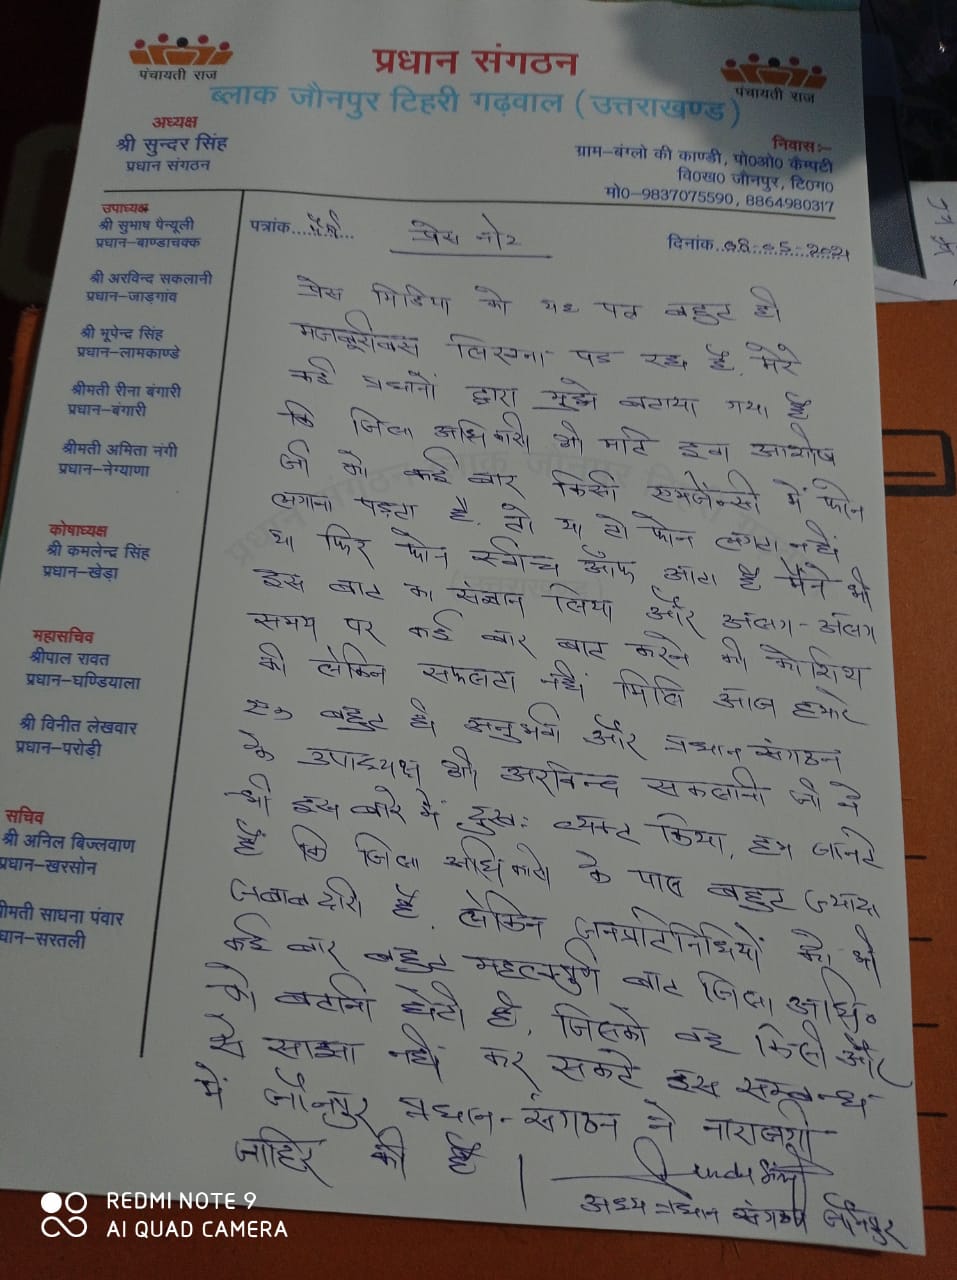 पंचायती राज
प्रधान संगठन
पंचायती राज
ब्लाक जौनपुर टिहरी गढ़वाल (उत्तराखण्ड)
अध्यक्ष
श्री सुन्दर सिंह
प्रधान संगठन
निवासः–
ग्राम–बंग्लो की काण्डी, पो0ओ0 कैम्पटी
वि0ख0 जौनपुर, टि0ग0
मो0–9837075590, 8864980317
उपाध्यक्ष
श्री सुभाष पैन्यूली
प्रधान–बाण्डाचक्क
श्री अरविन्द सकलानी
प्रधान–जाड़गांव
श्री भूपेन्द्र सिंह
प्रधान–लामकाण्डे
श्रीमती रीना बंगारी
प्रधान–बंगारी
श्रीमती अमिता नंगी
प्रधान–नेग्याणा
कोषाध्यक्ष
श्री कमलेन्द्र सिंह
प्रधान–खेड़ा
महासचिव
श्रीपाल रावत
प्रधान–घण्डियाला
श्री विनीत लेखवार
प्रधान–परोड़ी
सचिव
श्री अनिल बिज्लवाण
प्रधान–खरसोन
ीमती साधना पंवार
धान–सरतली
पत्रांक
प्रेस नोट
दिनांक 08-05-2021
प्रेस मिडिया को यह पत्र बहुत ही
मजबूरीवस लिखना पड़ रहा है. मेरे
कई प्रधानों द्वारा मुझे बताया गया है
कि जिला अधिकारी श्री मति इवा आशीष
जी को कई बार किसी एमर्जेन्सी में फोन
लगाना पड़ता है. तो या तो फोन लगता नहीं
या फिर फोन स्वीच ऑफ आता है मैंने भी
इस बात का संज्ञान लिया और अलग-अलग
समय पर कई बार बात करने की कोशिश
की लेकिन सफलता नहीं मिलि आज हमारे
एक बहुत ही अनुभवी और प्रधान संगठन
के उपाध्यक्ष श्री अरविन्द सकलानी जी ने
भी इस बारे में दुखः व्यक्त किया, हम जानते
हैं कि जिला अधिकारी के पास बहुत ज्यादा
जबाब दारी है. लेकिन जनप्रतिनिधियों को भी
कई बार बहुत महत्वपूर्ण बात जिला अधि०
को बतानी होती है. जिसको वह किसी और
से साझा नहीं कर सकते इस सम्बन्ध
में जौनपुर प्रधान-संगठन ने नाराजगी
जाहिर की है।
अध्य प्रधान संगठन जौनपुर
REDMI NOTE 9
AI QUAD CAMERA